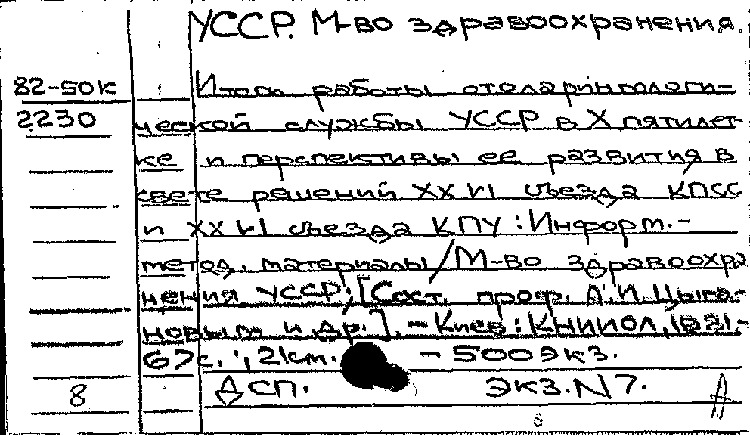 УССР. М-во здравоохранения.
82-50К
Итоги работы отоларингологи-
2230
ческой службы УССР в X пятилет-
ке и перспективы ее развития в
свете решений XXVI съезда КПСС
и XXVI съезда КПУ : Информ.-
метод. материалы / М-во здравоохра-
нения УССР; [Сост. проф. А.И. Цыга-
новым и др.]. - Киев : КНИИОЛ, 1981.-
67с. ; 21см. - 500 экз.
8
ДСП. Экз. N7.